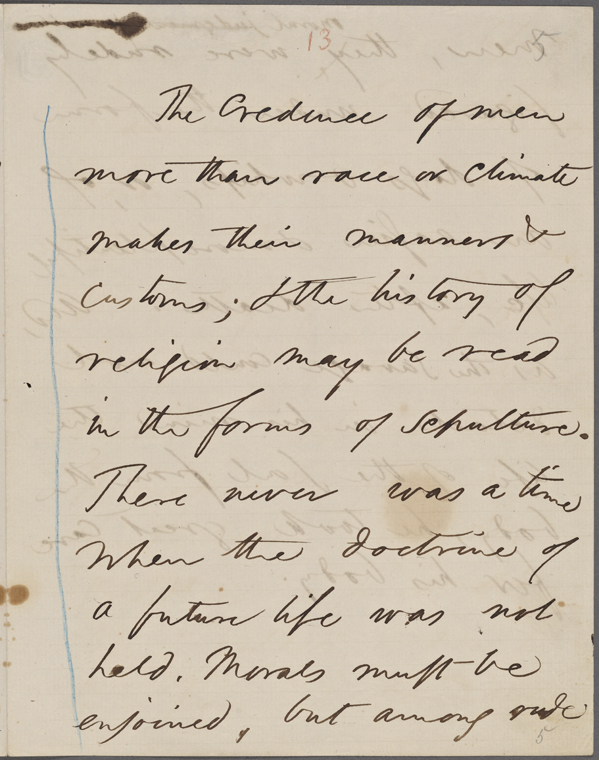 13
The Credence of men
more than race or climate
makes their manners &
customs; & the history of
religion may be read
in the forms of sepulture.
There never was a time
when the doctrine of
a future life was not
held. Morals must be
enjoined, but among rude
5